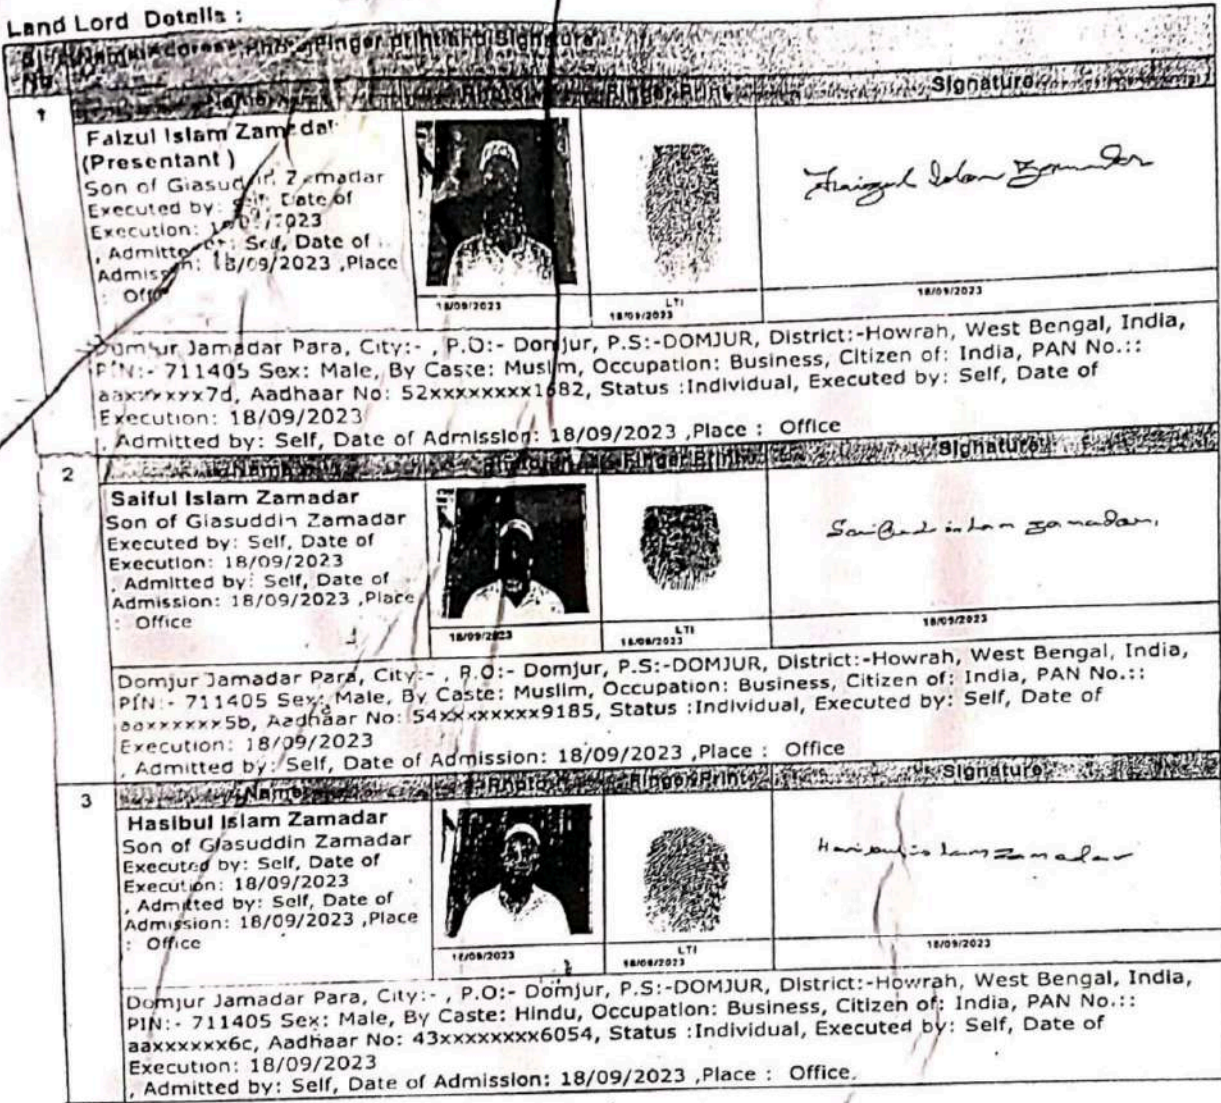 Land Lord Details :
Sl No Name, Address, Photo, Finger print and Signature
1
Name Photo Finger Print Signature
Faizul Islam Zamadar
(Presentant )
Son of Giasuddin Zamadar
Executed by: Self, Date of
Execution: 18/09/2023
, Admitted by: Self, Date of
Admission: 18/09/2023 ,Place
: Office
Faizul Islam Zamadar
18/09/2023
LTI
18/09/2023
18/09/2023
Domjur Jamadar Para, City:- , P.O:- Domjur, P.S:-DOMJUR, District:-Howrah, West Bengal, India,
PIN:- 711405 Sex: Male, By Caste: Muslim, Occupation: Business, Citizen of: India, PAN No.::
aaxxxxxx7d, Aadhaar No: 52xxxxxxxx1682, Status :Individual, Executed by: Self, Date of
Execution: 18/09/2023
, Admitted by: Self, Date of Admission: 18/09/2023 ,Place : Office
2
Name Photo Finger Print Signature
Saiful Islam Zamadar
Son of Giasuddin Zamadar
Executed by: Self, Date of
Execution: 18/09/2023
, Admitted by: Self, Date of
Admission: 18/09/2023 ,Place
: Office
Saiful islam zamadar.
18/09/2023
LTI
18/09/2023
18/09/2023
Domjur Jamadar Para, City:- , P.O:- Domjur, P.S:-DOMJUR, District:-Howrah, West Bengal, India,
PIN:- 711405 Sex: Male, By Caste: Muslim, Occupation: Business, Citizen of: India, PAN No.::
aaxxxxxx5b, Aadhaar No: 54xxxxxxxx9185, Status :Individual, Executed by: Self, Date of
Execution: 18/09/2023
, Admitted by: Self, Date of Admission: 18/09/2023 ,Place : Office
3
Name Photo Finger Print Signature
Hasibul Islam Zamadar
Son of Giasuddin Zamadar
Executed by: Self, Date of
Execution: 18/09/2023
, Admitted by: Self, Date of
Admission: 18/09/2023 ,Place
: Office
Hasibul islam zamadar
18/09/2023
LTI
18/09/2023
18/09/2023
Domjur Jamadar Para, City:- , P.O:- Domjur, P.S:-DOMJUR, District:-Howrah, West Bengal, India,
PIN:- 711405 Sex: Male, By Caste: Hindu, Occupation: Business, Citizen of: India, PAN No.::
aaxxxxxx6c, Aadhaar No: 43xxxxxxxx6054, Status :Individual, Executed by: Self, Date of
Execution: 18/09/2023
, Admitted by: Self, Date of Admission: 18/09/2023 ,Place : Office.